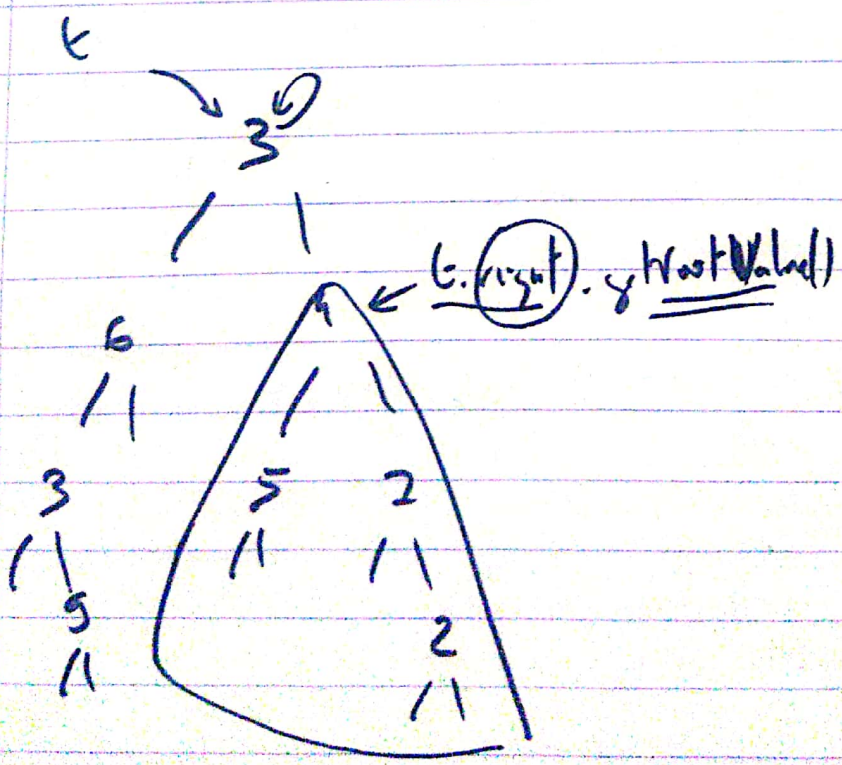 t
3
t.right.getRootValue()
6
5 2
3
2